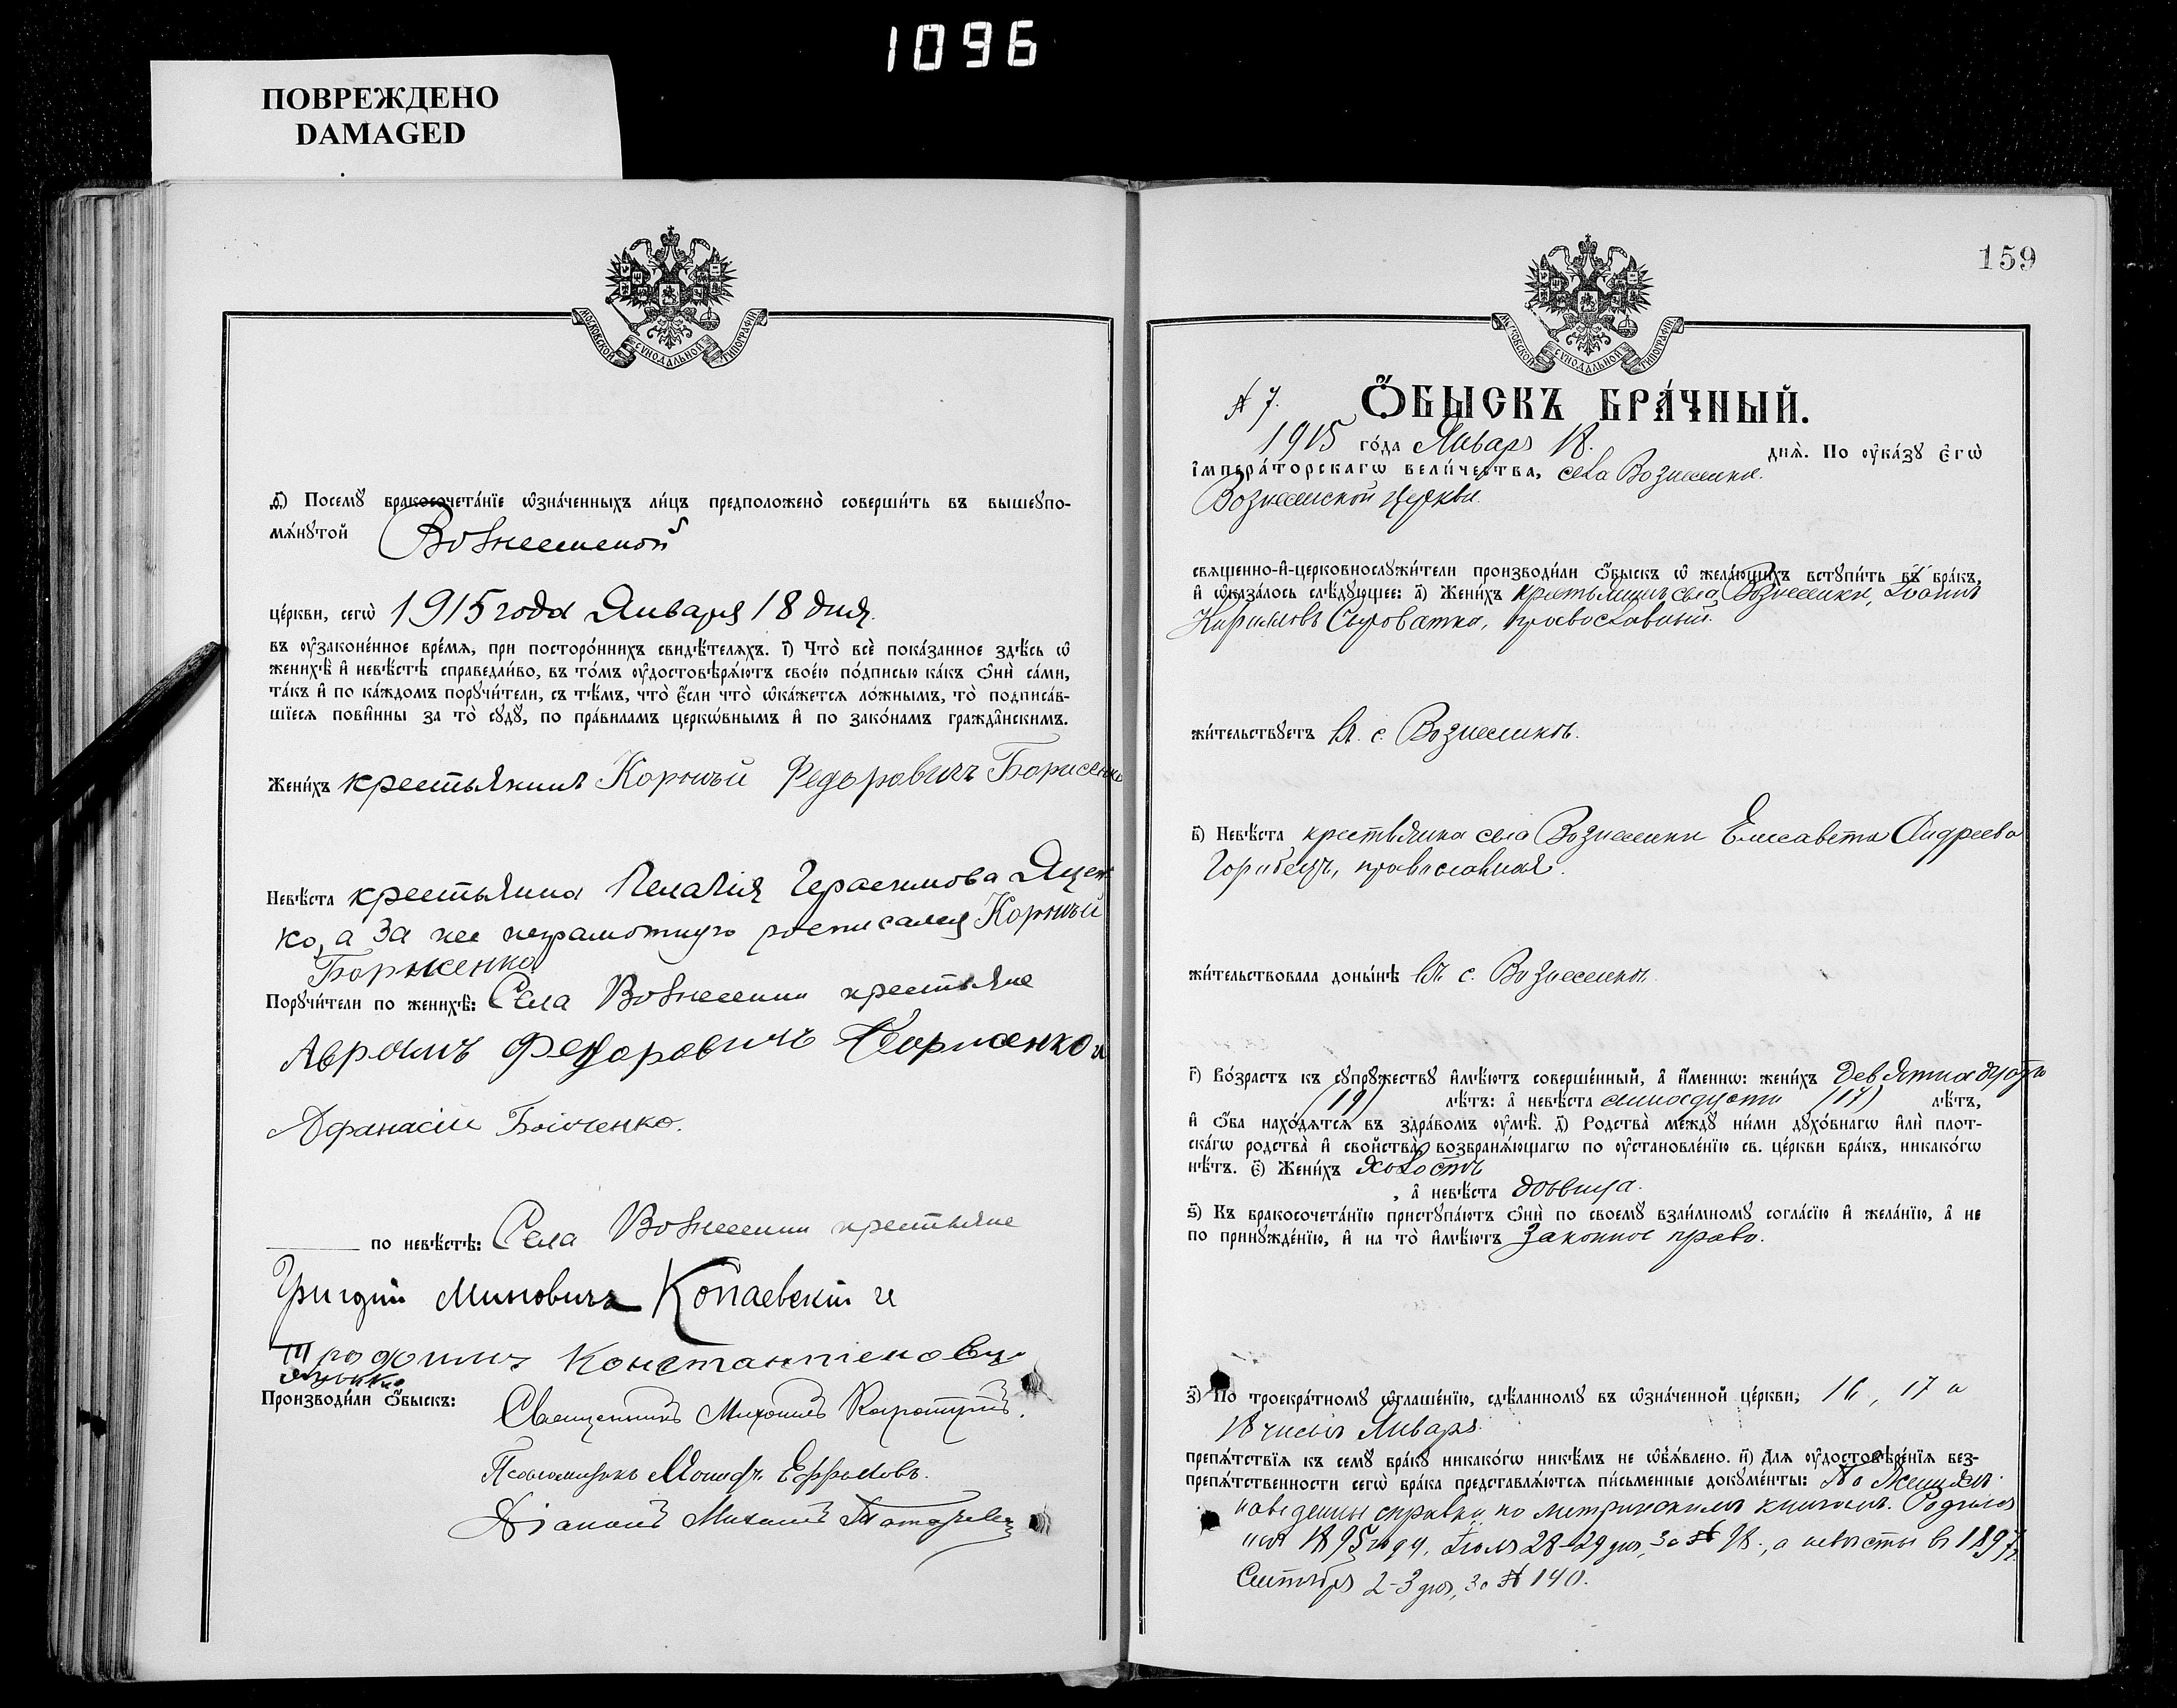 1096
ПОВРЕЖДЕНО
DAMAGED
МОСКОВСКОЙ СѴНОДАЛЬНОЙ ТИПОГРАФІИ
ѳ҃) Посемꙋ бракосочета́нїе ѡ҆зна́ченныхъ ли́цъ предположено̀ соверши́ть въ вышеꙋпо-
мѧ́нꙋтой Вознесенской
це́ркви, сегѡ̀ 1915 года Января 18 дня.
въ ᲂу҆зако́ненное вре́мѧ, при посторо́ннихъ свидѣ́телѧхъ. і҃) Что̀ всѐ пока́занное здѣ́сь ѡ҆
женихѣ̀ и҆ невѣ́стѣ справедли́во, въ то́мъ ᲂу҆достовѣрѧ́ютъ свое́ю по́дписью ка́къ ѻ҆нѝ са́ми,
та́къ и҆ по ка́ждомъ порꙋчи́тели, съ тѣ́мъ, что̀ є҆́сли что̀ ѡ҆ка́жетсѧ ло́жнымъ, то̀ подписа́в-
шїесѧ пови́нны за то̀ сꙋдꙋ̀, по пра́виламъ церкѡ́внымъ и҆ по зако́намъ гражда́нскимъ.
Жени́хъ крестьянинъ Корнѣй Федоровичъ Борисенко
Невѣ́ста крестьянка Пелагія Герасимова Яцен
ко, а за нее неграмотную росписался Корнѣй
Борисенко
Порꙋчи́тели по женихѣ̀: Села Вознесенки крестьяне
Авраамъ Федоровичъ Борисенко и
Афанасій Бойченко.
по невѣ́стѣ: Села Вознесенки крестьяне
Григорій Миновичъ Копаевскій и
Трофимъ Константиновъ
Производи́ли ѻ҆́быскъ: Священникъ Михаилъ
Псаломщикъ Ефремовъ.
Діаконъ Михаилъ
159
МОСКОВСКОЙ СѴНОДАЛЬНОЙ ТИПОГРАФІИ
№ 7. Ѻ҆́БЫСКЪ БРА́ЧНЫЙ.
1915 го́да Январь 18. днѧ̀. По ᲂу҆ка́зꙋ Є҆гѡ̀
І҆мпера́торскагѡ вели́чества, села Вознесенки.
Вознесенской церкви.
свѧще́нно-и҆-церковнослꙋжи́тели производи́ли ѻ҆́быскъ ѡ҆ жела́ющихъ встꙋпи́ть въ бра́къ,
и҆ ѡ҆каза́лось слѣ́дꙋющее: а҃) Жени́хъ крестьянинъ села Вознесенки, Іоаннъ
Кириловъ Сыроватка, православный.
жи́тельствꙋетъ въ с. Вознесенкѣ.
в҃) Невѣ́ста крестьянка села Вознесенки Елисавета Андреева
Горибецъ, православная.
жи́тельствовала доны́нѣ въ с. Вознесенкѣ.
г҃) Во́зрастъ къ сꙋпрꙋ́жествꙋ и҆мѣ́ютъ соверше́нный, а҆ и҆́меннѡ: жени́хъ девятнадцать
(19) лѣ́тъ: а҆ невѣ́ста семнадцати (17) лѣ́тъ,
и҆ ѻ҆́ба нахо́дѧтсѧ въ здра́вомъ ᲂу҆мѣ̀. д҃) Родства̀ ме́ждꙋ ни́ми дꙋхо́внагѡ и҆лѝ плот-
ска́гѡ родства̀ и҆ сво́йства, возбранѧ́ющагѡ по ᲂу҆становле́нїю св. це́ркви бра́къ, никако́гѡ
нѣ́тъ. є҃) Жени́хъ холостъ
, а҆ невѣ́ста дѣвица.
ѕ҃) Къ бракосочета́нїю пристꙋпа́ютъ ѻ҆нѝ по своемꙋ̀ взаи́мномꙋ согла́сїю и҆ жела́нїю, а҆ не
по принꙋжде́нїю, и҆ на то̀ и҆мѣ́ютъ законное право.
з҃) По троекра́тномꙋ ѡ҆глаше́нїю, сдѣ́ланномꙋ въ ѡ҆зна́ченной це́ркви, 16, 17 и
18 чиселъ Января.
препѧ́тствїѧ къ семꙋ̀ бра́кꙋ никако́гѡ никѣ́мъ не ѡ҆б̾ѧ́влено. и҃) Длѧ ᲂу҆достовѣре́нїѧ без-
препѧ́тственности сегѡ̀ бра́ка представлѧ́ютсѧ пи́сьменные докꙋме́нты: По
наведены справки по метрическимъ книгамъ. Родился
1895 году, Іюля 28-29 дня, за № 98., а невѣсты въ 1897 г.
Сентября 2-3 дня, за № 140.